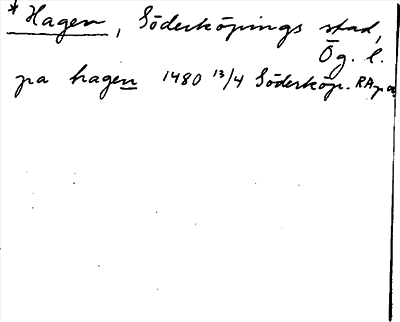 * Hagen, Söderköpings stad,
Ög. l.
pa hagen 1480 13/4 Söderköp. RAp or